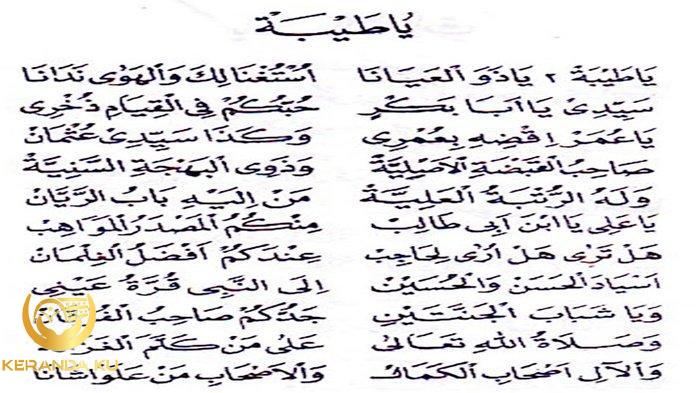 يَاطَيْبَةْ
يَاطَيْبَةْ ٢ يَاذَوَ الْعَيَانَا اُسْتُغْنَالِكْ وَالْهَوٰى نَدَانَا
سَيِّدِىْ يَا اَبَا بَكْرٍ حُبُّكُمْ فِي الْقِيَامِ ذُخْرِى
يَاعُمَرْ اِقْضِهِ بِعُمْرِى وَكَذَا سَيِّدِىْ عُثْمَانْ
صَاحِبُ الْقَبْضَةِ الْاَصْلِيَّةْ وَذَوِى الْبَهْجَةِ السَّنِيَّةْ
وَلَهُ الرُّتْبَةُ الْعَلِيَّةْ مَنْ اِلَيْهِ بَابُ الرَّيَّانْ
يَاعَلِى يَا ابْنَ اَبِى طَالِبْ مِنْكُمُ الْمَصْدَرُ الْمَوَاهِبْ
هَلْ تَرٰى هَلْ اُرٰى لِحَاجِبْ عِنْدَكُمْ اَفْضَلُ الْغِلْمَانْ
اَسْيَادْ الْحَسَنْ وَالْحُسَيْنْ اِلَى النَّبِى قُرَّةْ عَيْنِى
وَيَا شَبَابَ الْجَنَّتَيْنِ جَدُّكُمْ صَاحِبُ
وَصَلَاةُ اللهِ تَعَالٰى عَلٰى مَنْ كَلَّمَ
وَالْآلِ اَصْحَابِ الْكَمَالْ وَالْاَصْحَابِ مَنْ عَلَوْاشَانَا
KERANDA KU